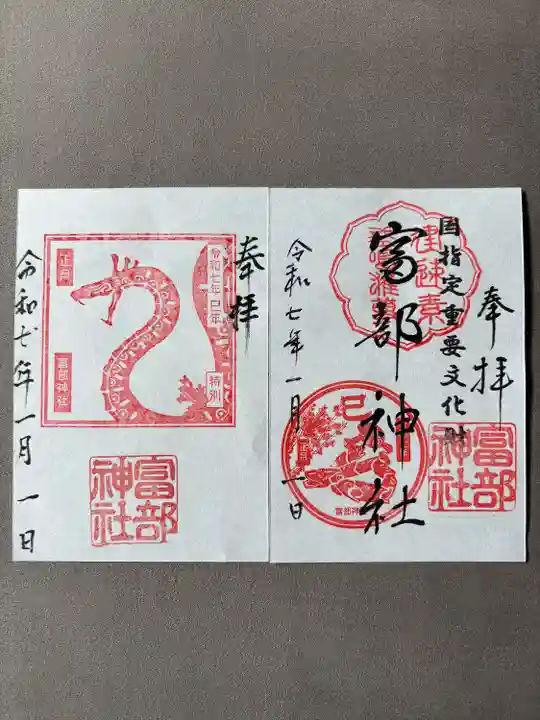 奉拝
国指定重要文化財
富部神社
建速素
巳
正月
富部神社
富部
神社
令和七年一月一日
奉拝
令和七年 巳年
特別
正月
富部神社
富部
神社
令和七年一月一日